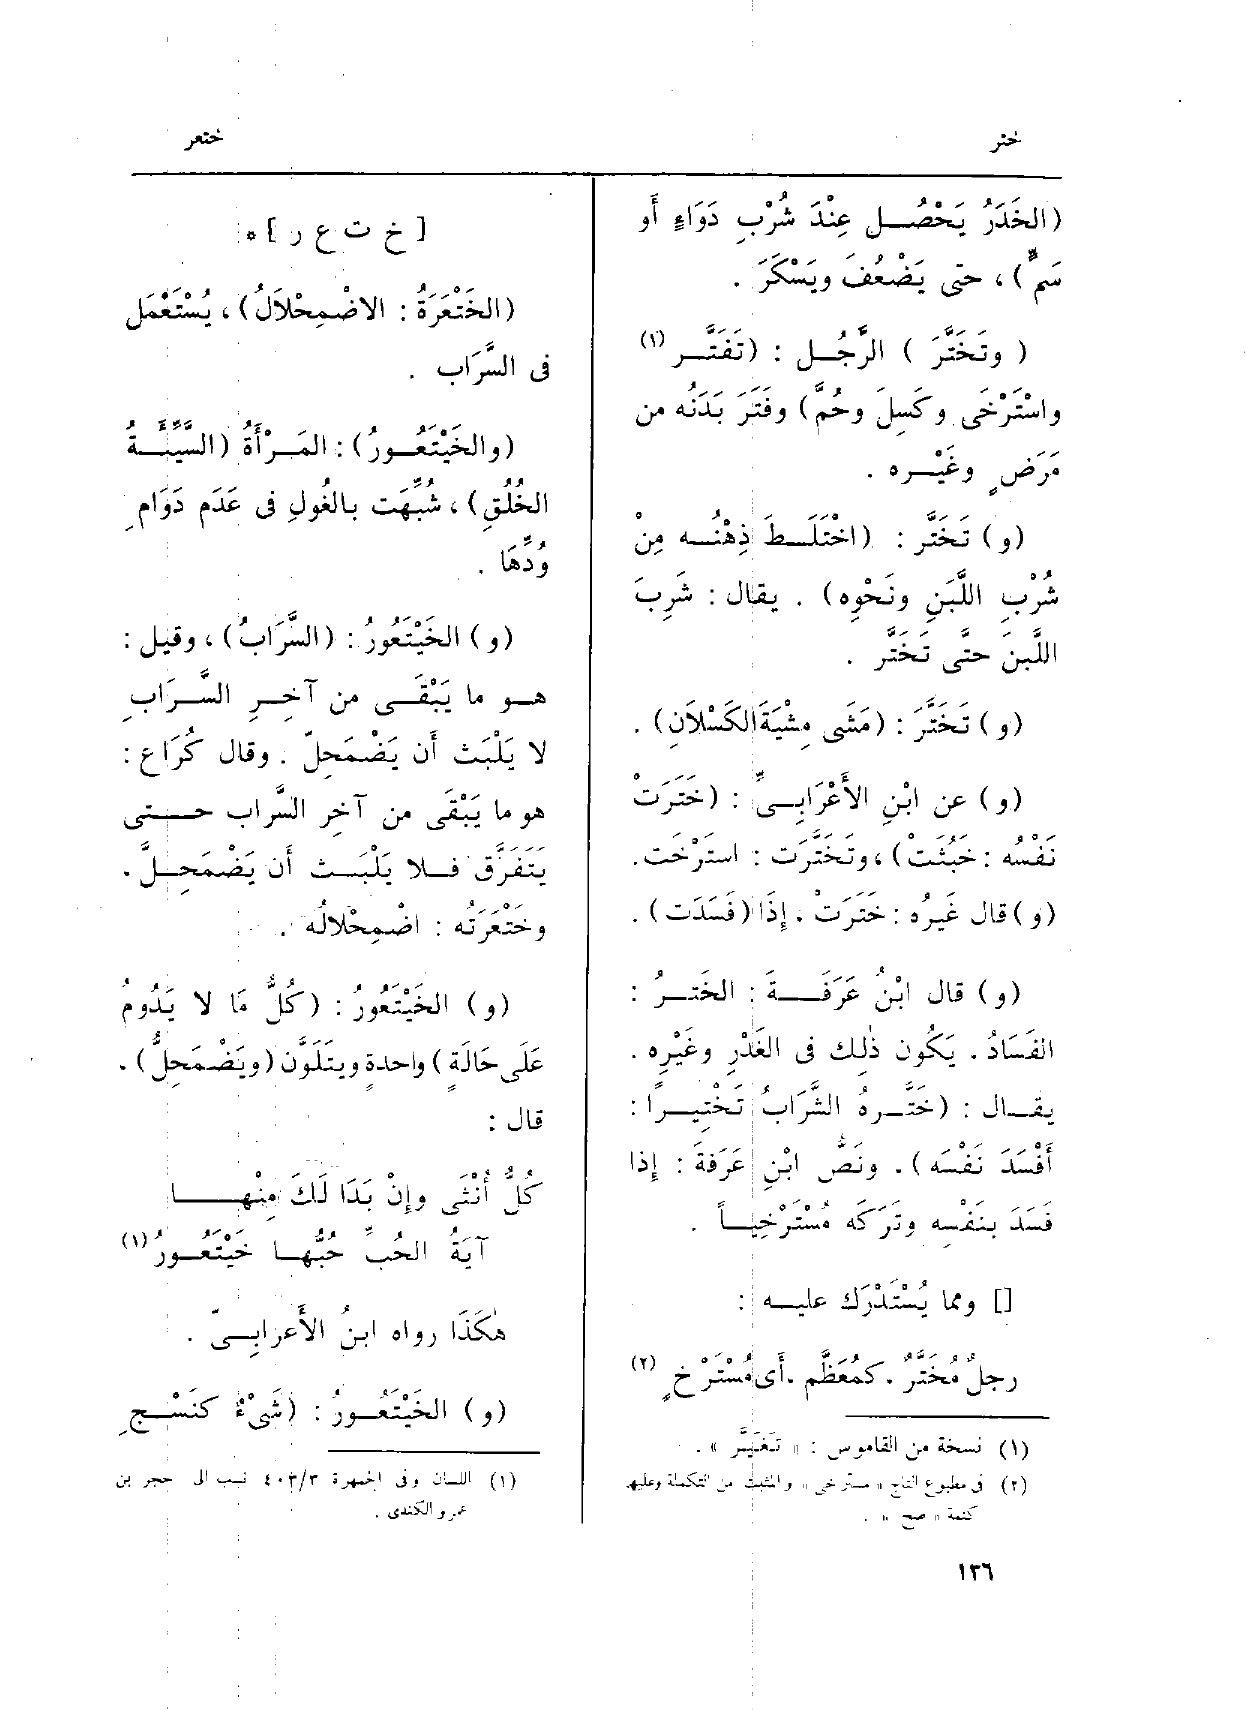 ختر
ختعر
(الخَدَرُ يَحْصُـل عِنْدَ شُرْبِ دَوَاءٍ أو
سَمٍّ)، حتى يَضْعُفَ ويَسْكَرَ .
( وتَخَتَّرَ ) الرَّجُـل : (تَفَتَّـر (١)
واسْتَرْخَى وكَسِلَ وحُمَّ) وفَتَرَ بَدَنُه من
مَرَضٍ وغَيْـره .
(و) تَخَتَّر : (اخْتَلَـطَ ذِهْنُـه مِنْ
شُرْبِ اللَّبَنِ ونَحْوِه) . يقال : شَرِبَ
اللَّبنَ حتَّى تَخَتَّر .
(و) تَخَتَّرَ : (مَشَى مِشْيَةَ الكَسْلاَنِ) .
(و) عن ابْنِ الأَعْرَابِـىِّ : (خَتَرَتْ
نَفْسُه : خَبُثَتْ)، وتَخَتَّرَت : استَرْخَت.
(و) قال غَيرُه : خَتَرَتْ . إذَا (فَسَدَت) .
(و) قال ابْنُ عَرَفَـــةَ : الخَتـرُ :
الفَسَادُ . يَكُون ذٰلك فى الغَدْرِ وغَيْرِه .
يقــال : (خَتَّـرهُ الشَّرَابُ تَخْتِيـرًا :
أَفْسَدَ نَفْسَه) . ونَصُّ ابْنِ عَرَفةَ : إذا
فَسَدَ بنَفْسِه وتَرَكه مُسْتَرْخِيـاً .
[] ومما يُسْتَدْرَك عليـه :
رجلٌ مُخَتَّرٌ . كمُعَظَّم . أَى مُسْتَرْخٍ (٢)
(١) نسخة من القاموس : « تَغَيَّر » .
(٢) فى مطبوع التاج « مسترخى » والمثبت من التكملة وعليها
كلمة « صح » .
[ خ ت ع ر ] *
(الخَتْعَرَةُ : الاضْمِحْلاَلُ)، يُسْتَعْمَل
فى السَّرَاب .
(والخَيْتَعُـورُ) : المَـرْأَةُ (السَّيِّئَـةُ
الخُلُقِ)، شُبِّهَت بالغُولِ فى عَدَم دَوَامِ
وُدِّهَا .
(و) الخَيْتَعُورُ : (السَّرَابُ)، وقيل :
هـو ما يَبْقَـى من آخِـرِ السَّـرَابِ
لا يَلْبَث أن يَضْمَحِلّ . وقال كُرَاع :
هو ما يَبْقَى من آخِر السَّراب حـــتى
يَتَفَرَّق فـلا يَلْبَـث أن يَضْمَحِـلَّ .
وخَتْعَرَتُه : اضْمِحْلالُه .
(و) الخَيْتَعُورُ : (كُلُّ مَا لا يَدُومُ
عَلَى حَالَةٍ) واحدةٍ ويتَلَوَّن (ويَضْمَحِلُّ) .
قال :
كُلُّ أُنْثَى وإنْ بَدَا لَكَ مِنْهــــا
آيَةُ الحُبِّ حُبُّهـا خَيْتَعُـورُ (١)
هٰكَذَا رواه ابنُ الأَعرابِـىّ .
(و) الخَيْتَعُـورُ : (شَىْءٌ كنَسْـجِ
(١) اللسان وفى الجمهرة ٤٠٣/٣ نسب الى حجر بن
عمرو الكندى .
١٣٦